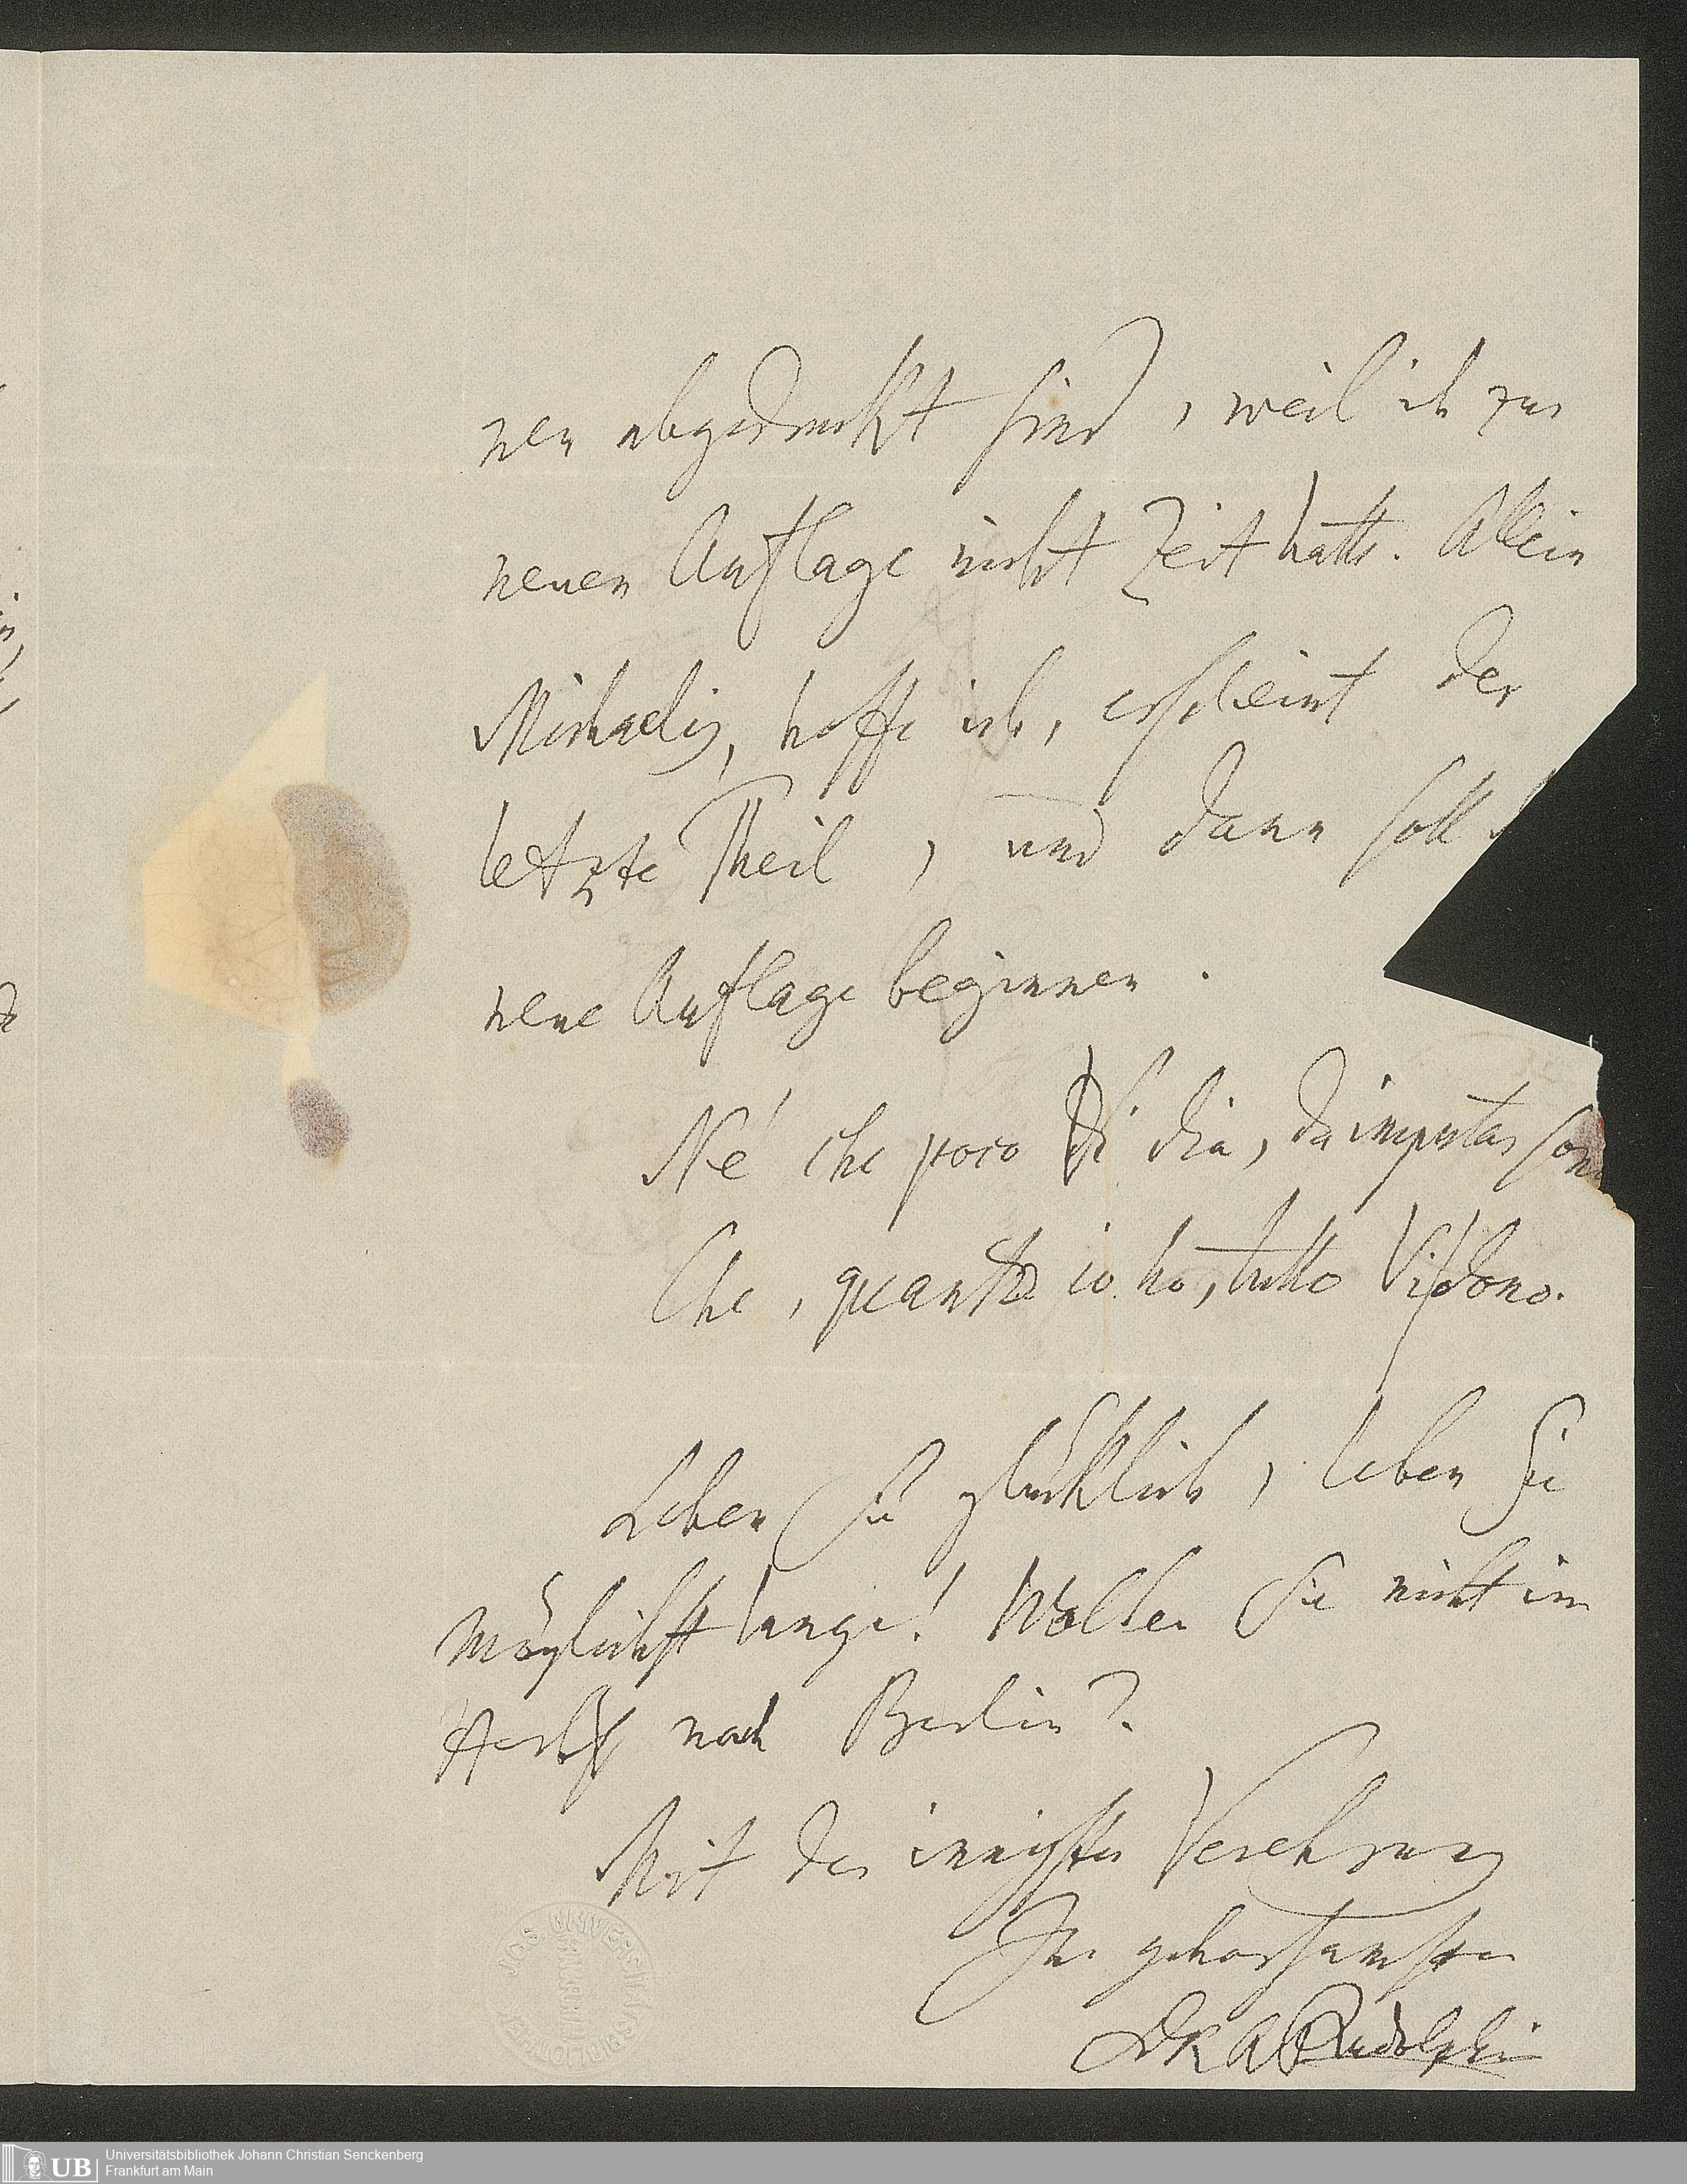 nen abgedruckt sind, weil ich zur
neuen Auflage nicht Zeit hatte. Allein
Michaelis, hoffe ich, erscheint der
letzte Theil, und dann soll d
neue Auflage beginnen.
Né che poco Vi dia, da imputar son
Che, quanto io ho, tutto Vi dono.
Leben Sie glücklich, leben Sie
möglichst lange! Wollen Sie nicht im
Herbst nach Berlin?
Mit der innigsten Verehrung
Ihr gehorsamster
DKARudolphi
UNIVERSITÄTS
BIBLIOTHEK
UB
Universitätsbibliothek Johann Christian Senckenberg
Frankfurt am Main